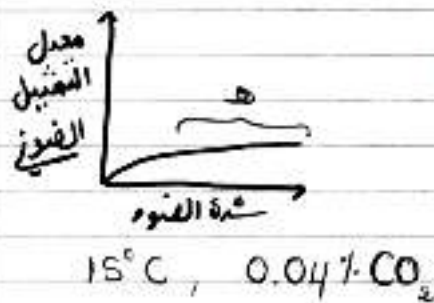 معدل
التمثيل
الضوئي
شدة الضوء
15°C, 0.04% CO₂